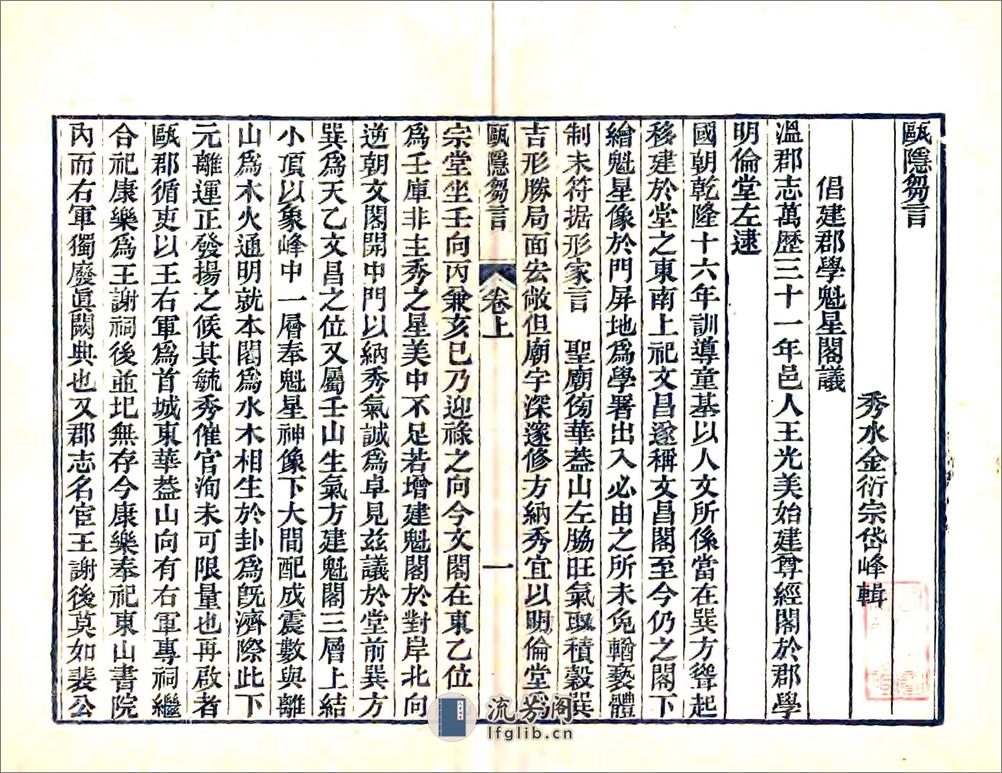 甌隱芻言
秀水金衍宗岱峰輯
倡建郡學魁星閣議
溫郡志萬歷三十一年邑人王光美始建尊經閣於郡學
明倫堂左逮
國朝乾隆十六年訓導童基以人文所係當在巽方聳起
移建於堂之東南上祀文昌遂稱文昌閣至今仍之閣下
繪魁星像於門屏地為學署出入必由之所未免輶褻體
制未符据形家言　聖廟傍華葢山左脇旺氣堆積穀巽
吉形勝局面宏敞但廟宇深邃修方納秀宜以明倫堂爲
甌隱芻言
卷上
一
宗堂坐壬向丙兼亥巳乃迎祿之向今文閣在東乙位
爲壬庫非主秀之星美中不足若增建魁閣於對岸北向
逆朝文閣開中門以納秀氣誠爲卓見兹議於堂前巽方
巽爲天乙文昌之位又屬壬山生氣方建魁閣三層上結
小頂以象峰中一層奉魁星神像下大間配成震數與離
山爲木火通明就本閣爲水木相生於卦爲旣濟際此下
元離運正發揚之候其毓秀催官洵未可限量也再啟者
甌郡循吏以王右軍爲首城東華葢山向有右軍專祠繼
合祀康樂爲王謝祠後並圯無存今康樂奉祀東山書院
內而右軍獨廢眞闕典也又郡志名宦王謝後莫如裴公
流芳阁
lfglib.cn